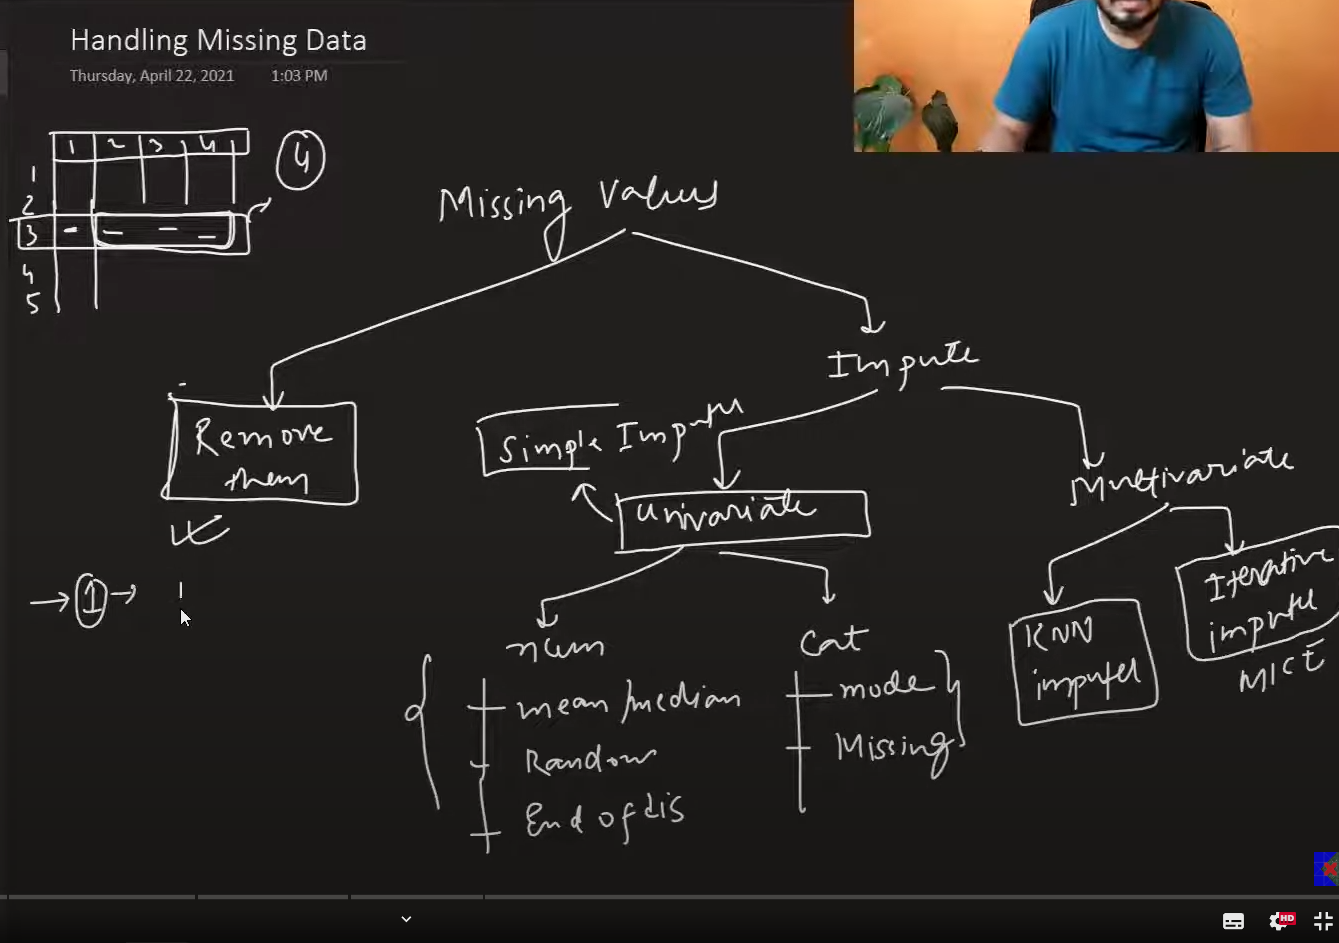 Handling Missing Data
Thursday, April 22, 2021 1:03 PM
1 2 3 4
1
2
3
4
5
4
Missing Values
Remove
them
Impute
Simple Imputer
Univariate
Multivariate
num
mean/median
Random
End of dis
Cat
mode
Missing
KNN
imputer
Iterative
imputer
MICE
1
HD